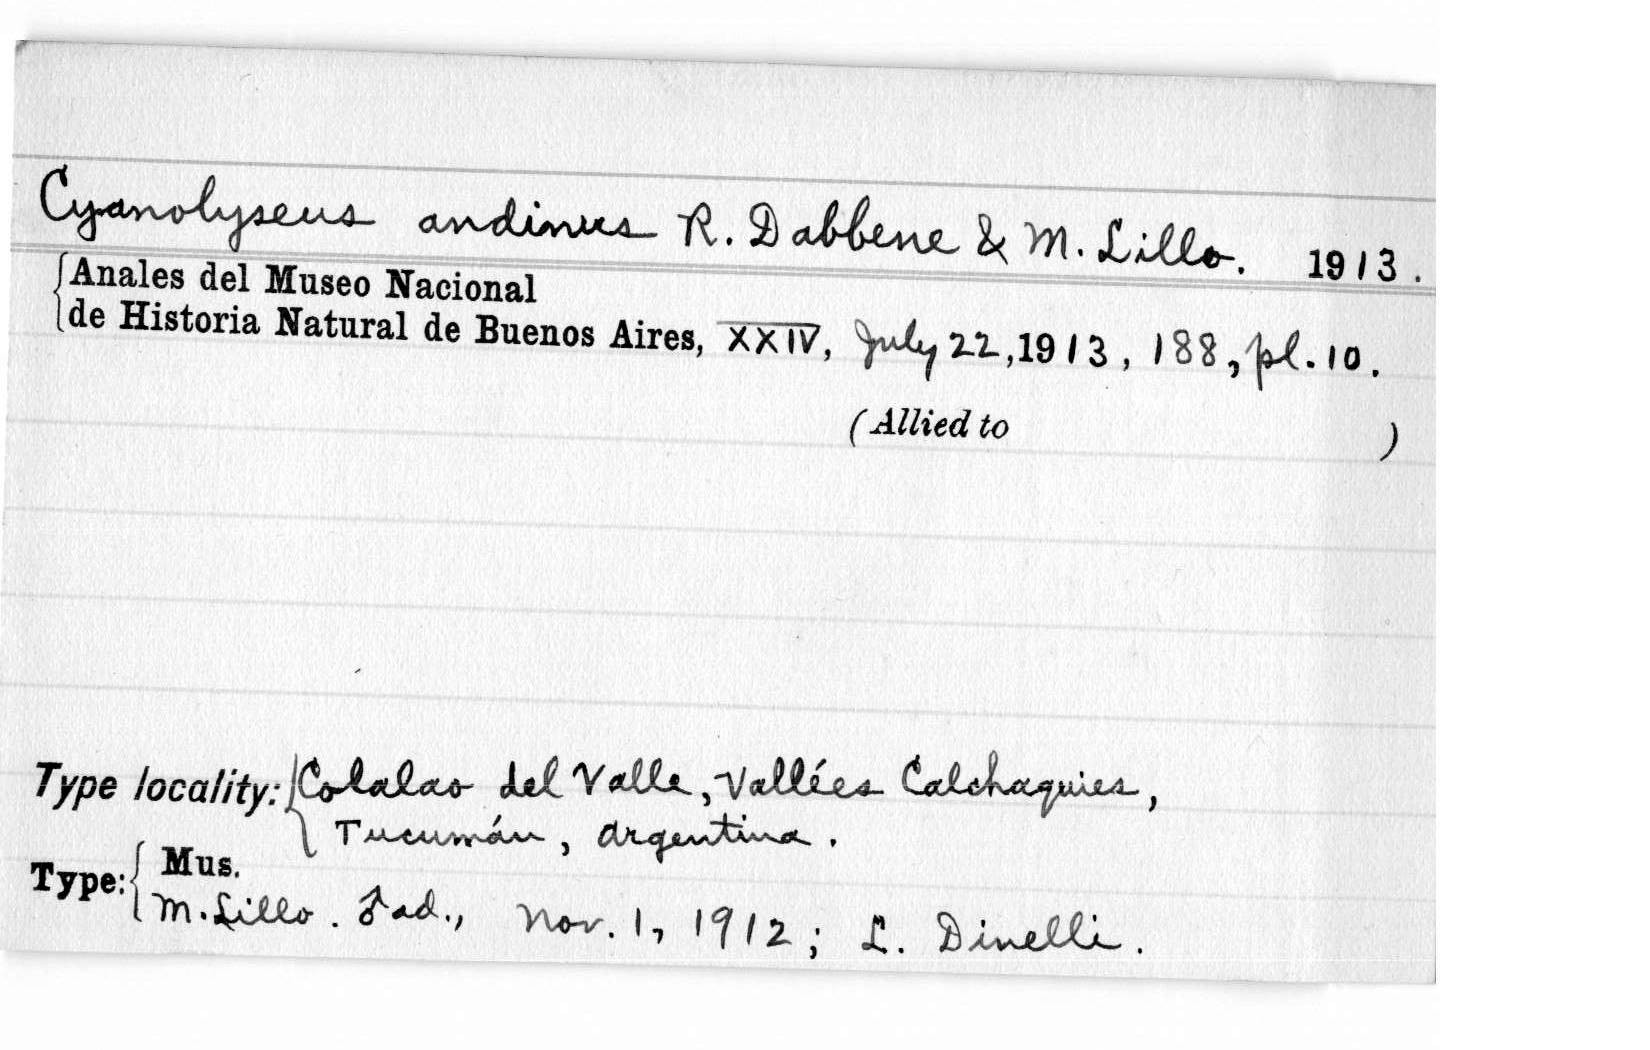 Cyanolyseus andinus R. Dabbene & M. Lillo. 1913.
Anales del Museo Nacional
de Historia Natural de Buenos Aires, XXIV, July 22, 1913, 188, pl. 10.
(Allied to )
Type locality: Colalao del Valle, Vallées Calchaquies,
Tucumán, Argentina.
Type: Mus.
M. Lillo. ♂ ad., Nov. 1, 1912; L. Dinelli.